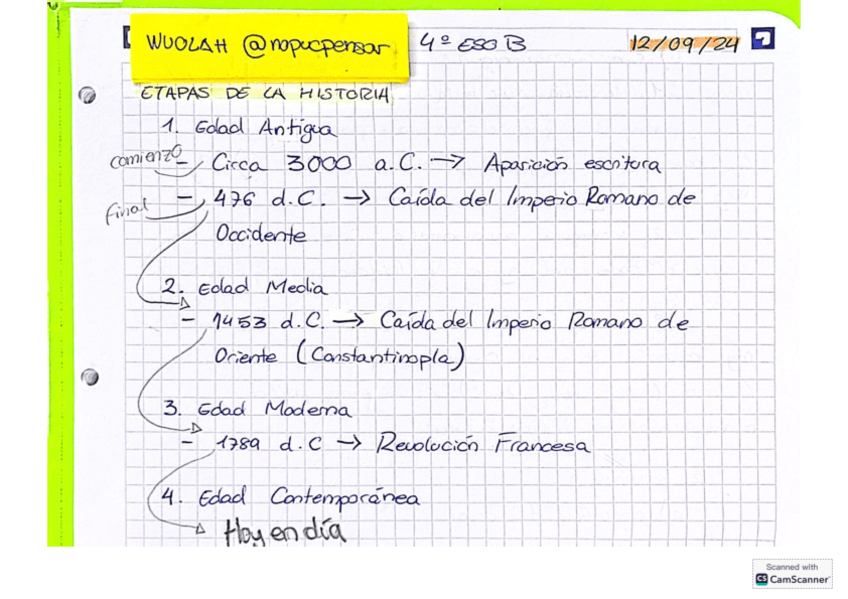 WUOLAH @nopucpensar 4º ESO B 12/09/24
ETAPAS DE LA HISTORIA
1. Edad Antigua
comienzo - Circa 3000 a.C. → Aparición escritura
final - 476 d.C. → Caída del Imperio Romano de
Occidente
2. Edad Media
- 1453 d.C. → Caída del Imperio Romano de
Oriente (Constantinopla)
3. Edad Moderna
- 1789 d.C → Revolución Francesa
4. Edad Contemporánea
Hoy en día
Scanned with
CS CamScanner